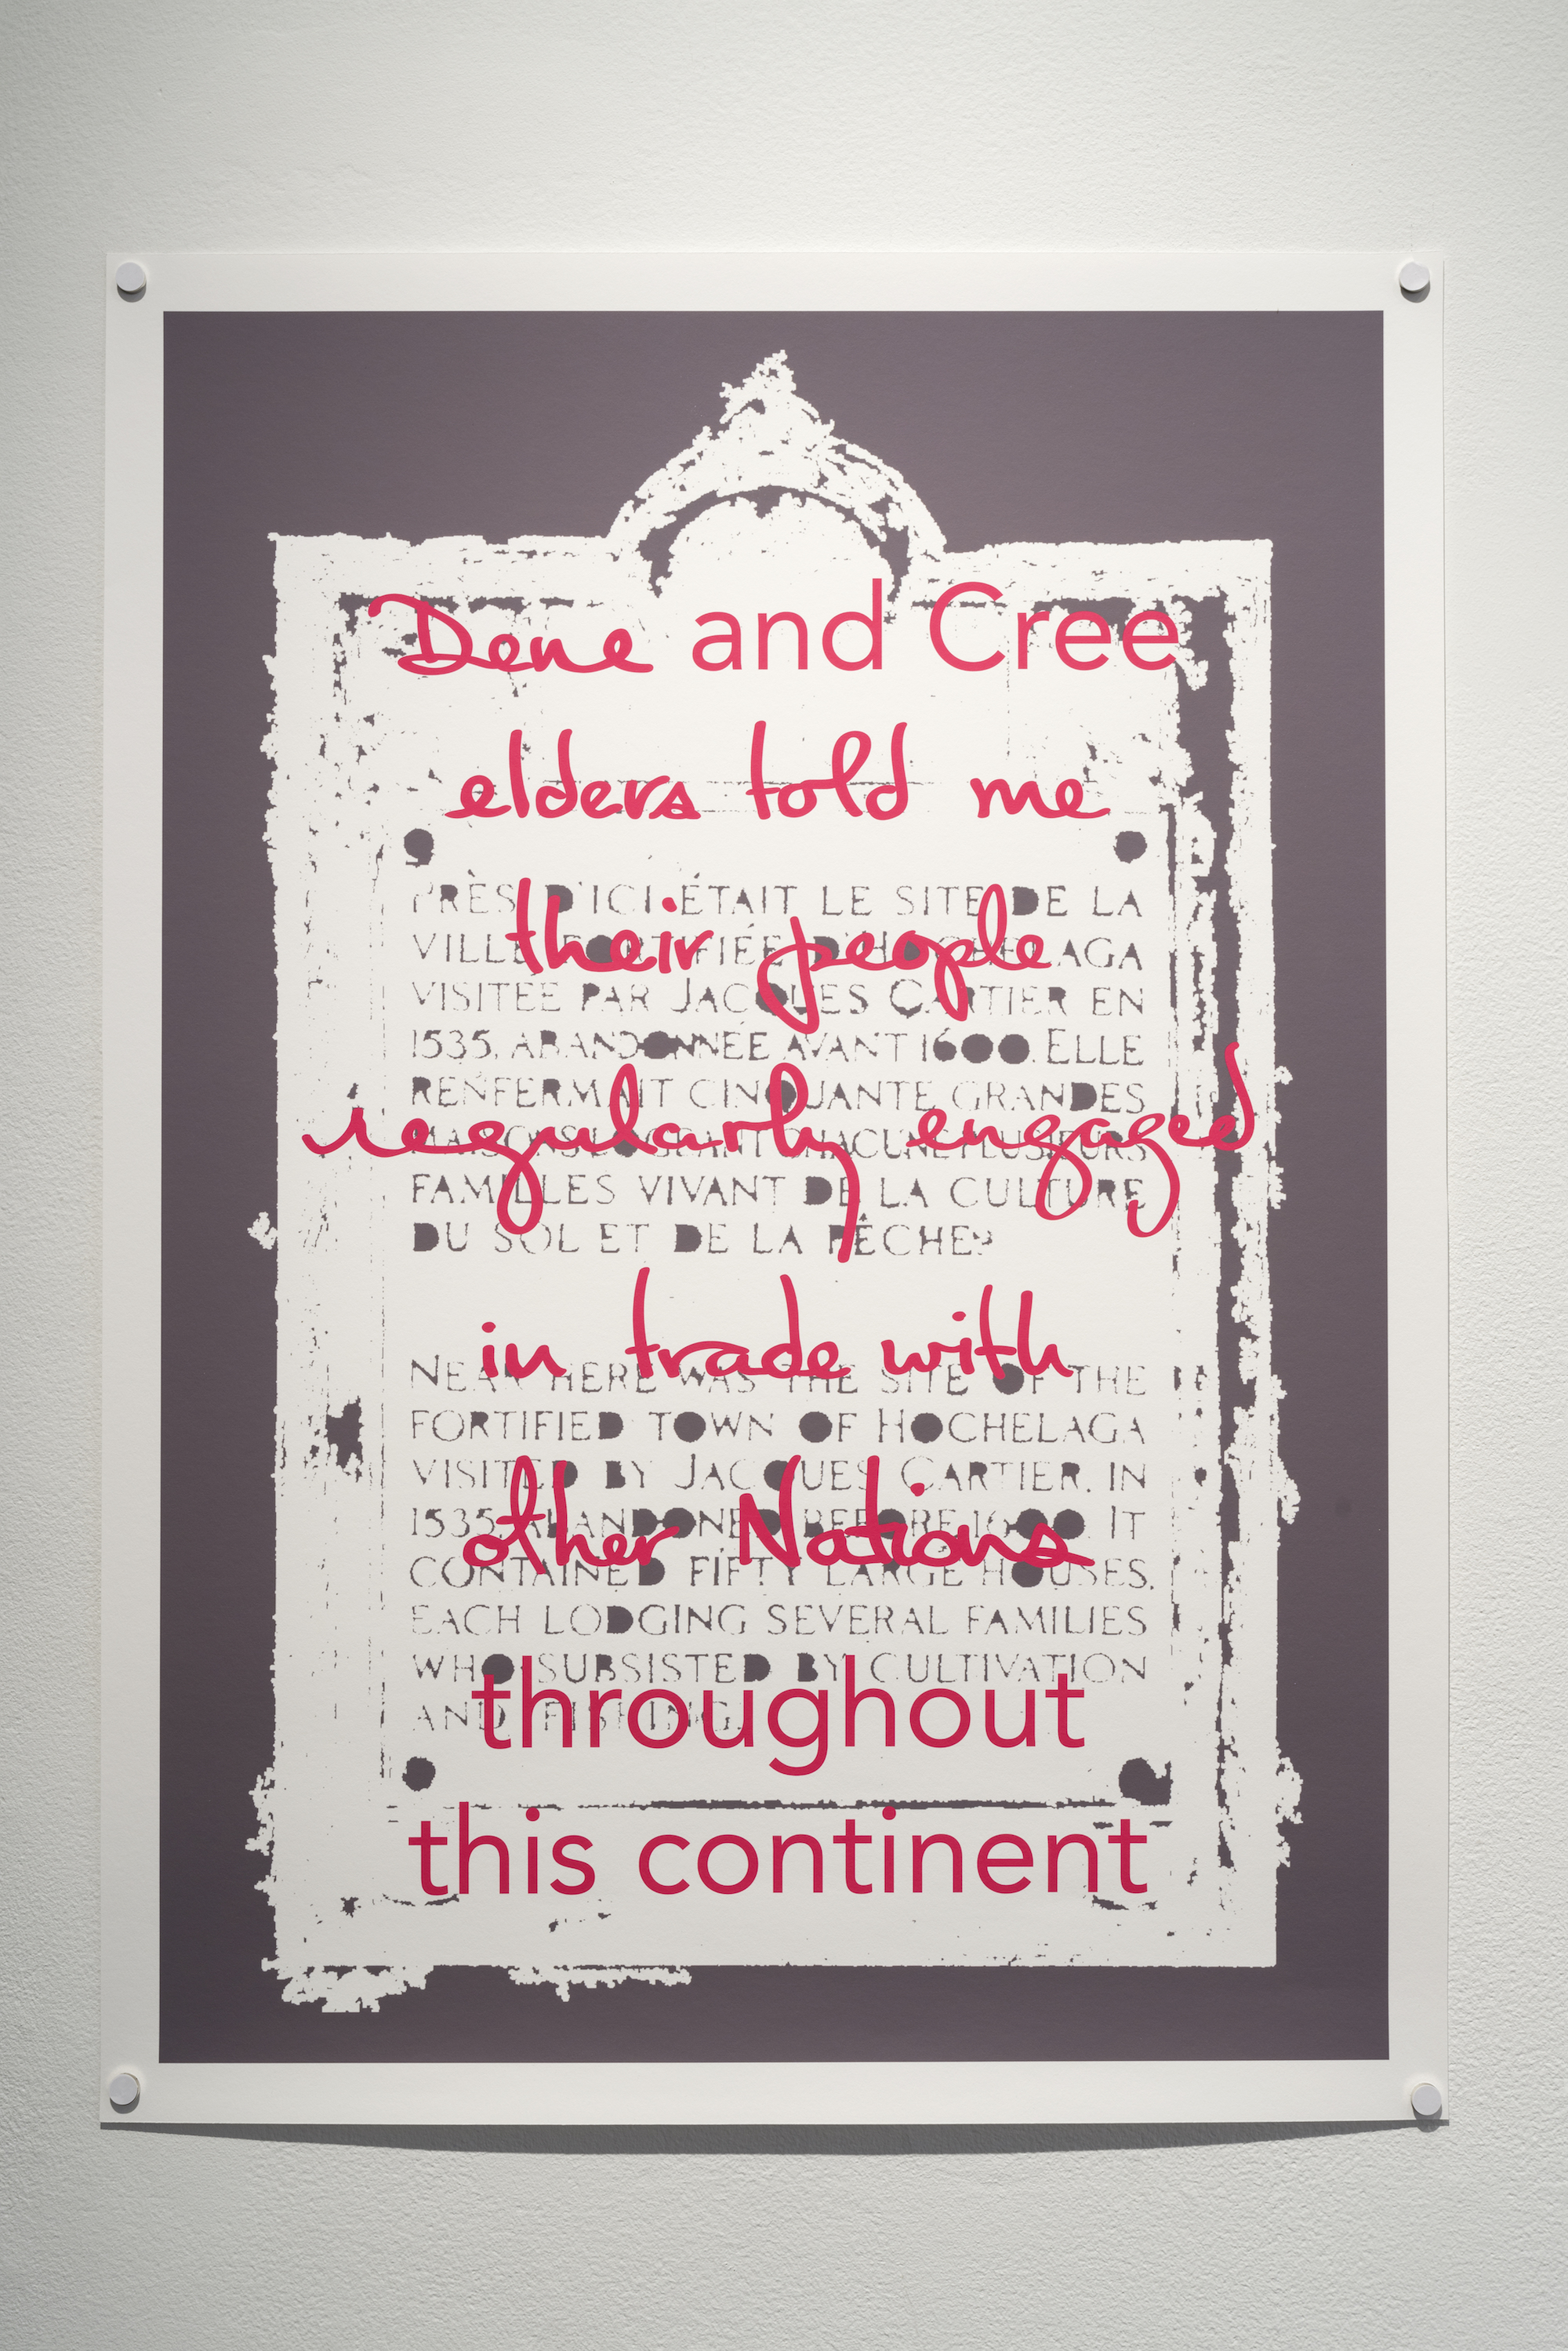 Dene and Cree
elders told me
their people
regularly engaged
in trade with
other Nations
throughout
this continent
PRÈS D'ICI ÉTAIT LE SITE DE LA
VILLE FORTIFIÉE D'HOCHELAGA
VISITÉE PAR JACQUES CARTIER EN
1535, ABANDONNÉE AVANT 1600. ELLE
RENFERMAIT CINQUANTE GRANDES
MAISONS LOGEANT CHACUNE PLUSIEURS
FAMILLES VIVANT DE LA CULTURE
DU SOL ET DE LA PÊCHE
NEAR HERE WAS THE SITE OF THE
FORTIFIED TOWN OF HOCHELAGA
VISITED BY JACQUES CARTIER, IN
1535, ABANDONED BEFORE 1600. IT
CONTAINED FIFTY LARGE HOUSES,
EACH LODGING SEVERAL FAMILIES
WHO SUBSISTED BY CULTIVATION
AND FISHING.